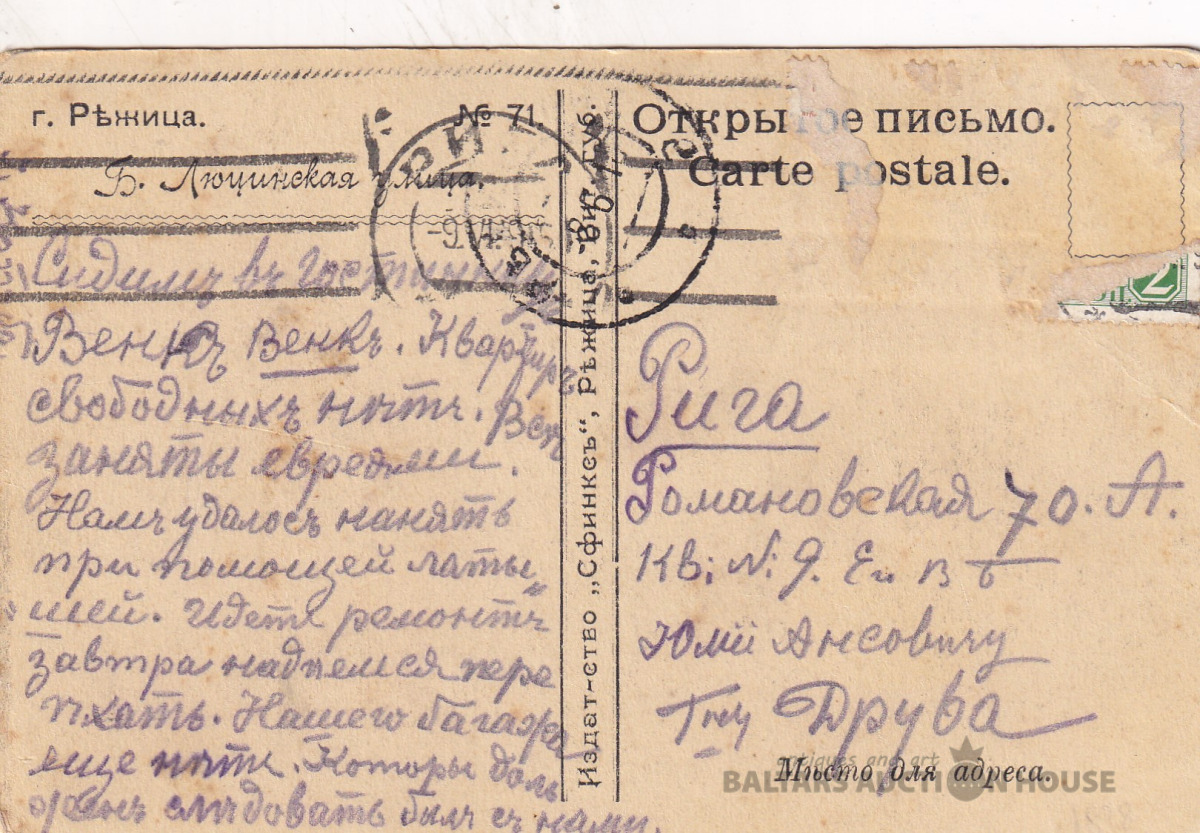 г. Рѣжица. № 71.
Б. Люцинская улица.
Сидимъ въ гостинницѣ
Венкъ Венкъ. Квартиръ
свободныхъ нѣтъ. Всѣ
заняты евреями.
Намъ удалось нанять
при помощей латы„
шей. Идетъ ремонтъ
завтра надѣемся пере
ѣхать. Нашего багажа
еще нѣтъ. Которы дол
женъ слѣдовать былъ съ нами.
Издат-ство „Сфинксъ“, Рѣжица, Вит. губ.
Открытое письмо.
Carte postale.
2
Рига
Романовская 70. А.
Кв; №. 9. Е в Б
Юлiй Ансовичу
Гну Друва
Мѣсто для адреса.
Antiques and art
BALTARS AUCTION HOUSE